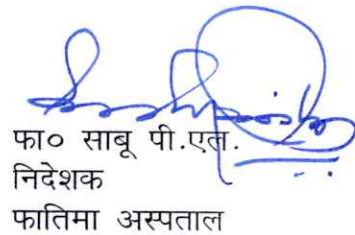 फा० साबू पी.एल.
निदेशक
फातिमा अस्पताल